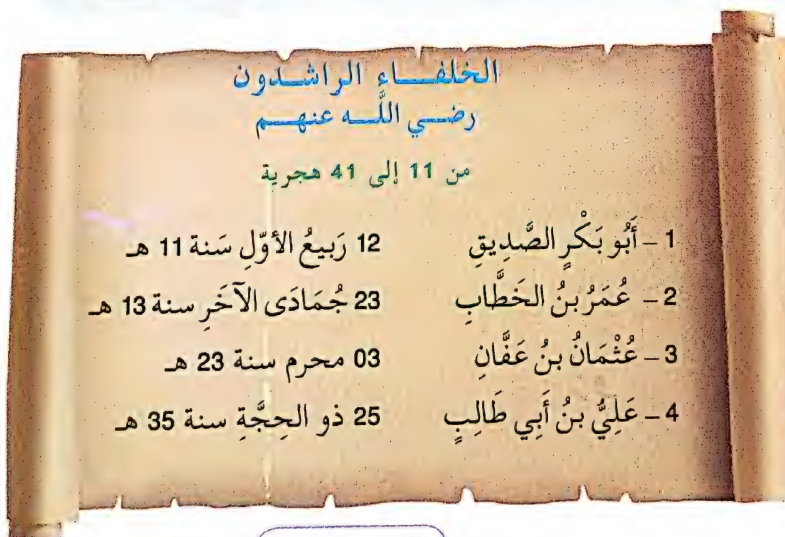 الخلفاء الراشدون
رضي اللَّه عنهم
من 11 إلى 41 هجرية
1 - أَبُو بَكْرٍ الصَّدِيقِ 12 رَبيعُ الأوّلِ سَنة 11 هـ
2 - عُمَرُ بنُ الخَطَّابِ 23 جُمَادَى الآخَرِ سنة 13 هـ
3 - عُثْمَانُ بنُ عَفَّانِ 03 محرم سنة 23 هـ
4 - عَلِيُّ بنُ أَبِي طَالِبٍ 25 ذو الحِجَّةِ سنة 35 هـ